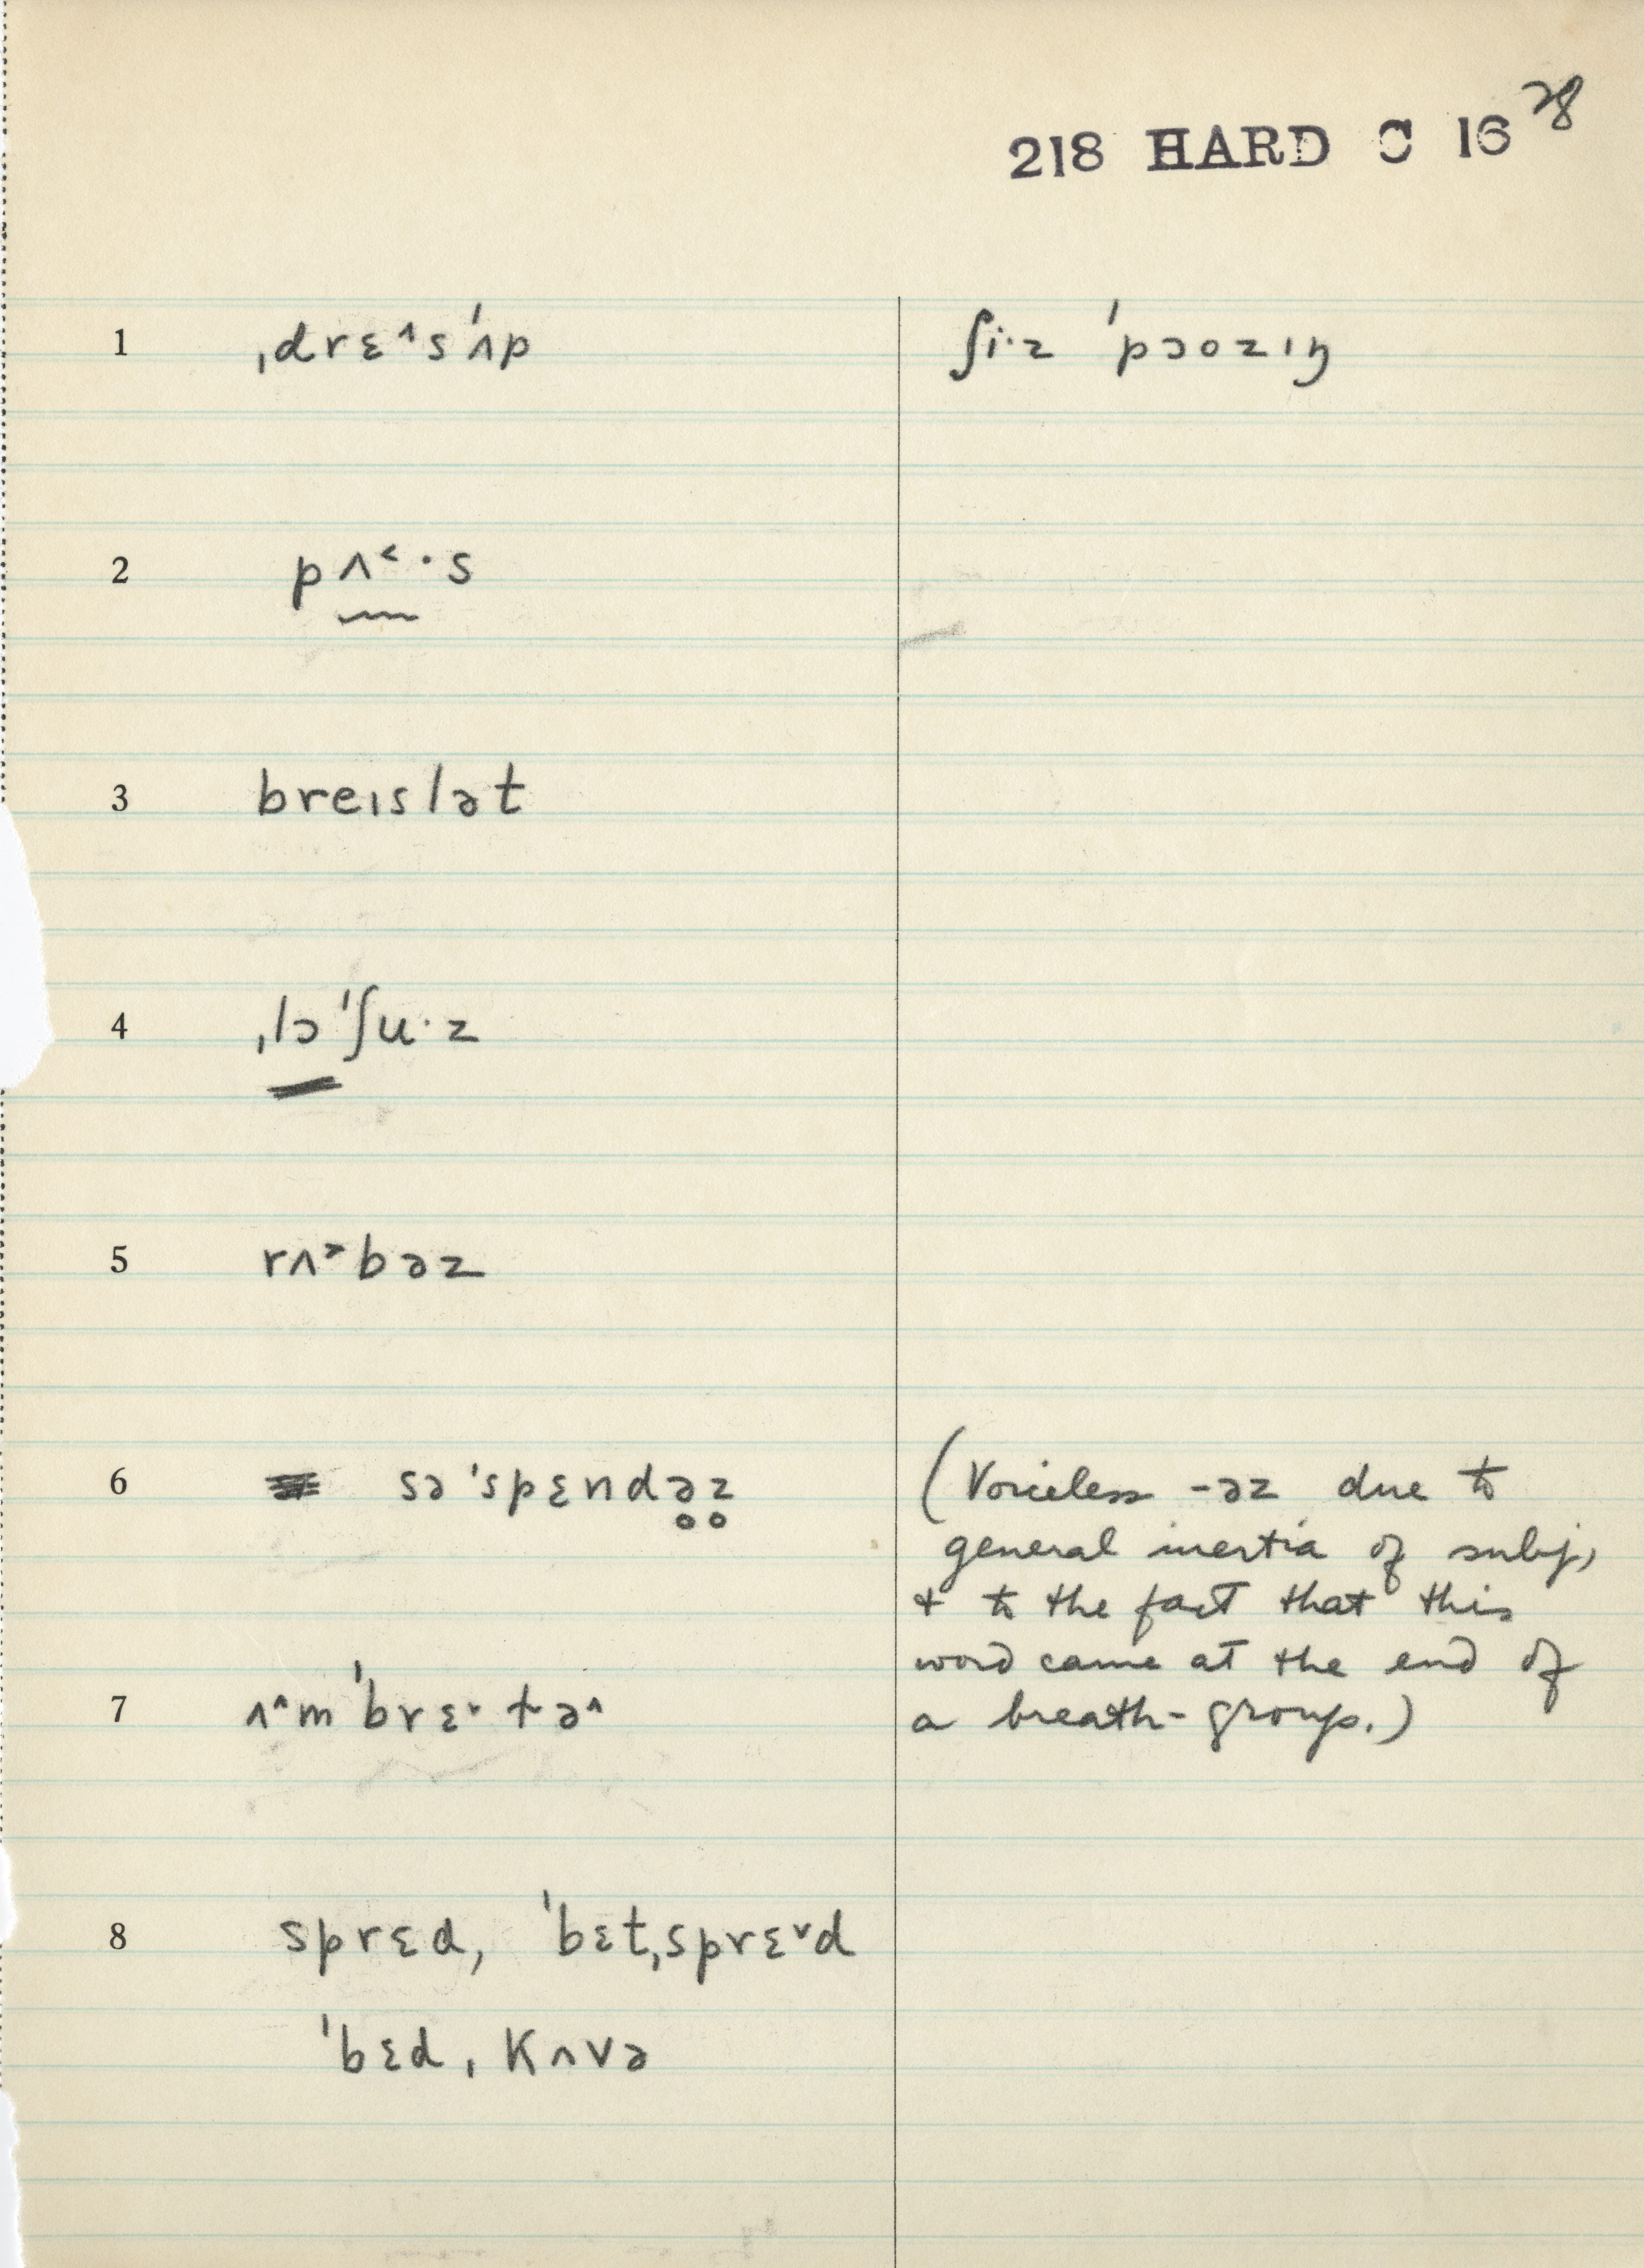 218 HARD C 16 28
1 ˌdrɛ^sˈʌp ʃi·z ˈpɔozɪŋ
2 pʌ˂·s
3 breɪslət
4 ˌlɔˈʃu·z
5 rʌ˃bəz
6 səˈspɛndə̥z̥ (Voiceless -əz due to
general inertia of subj,
+ to the fact that this
word came at the end of
7 ʌ^mˈbrɛ˔tə^ a breath-group.)
8 sprɛd, ˈbɛtˌsprɛ˅d
ˈbɛdˌkʌvə